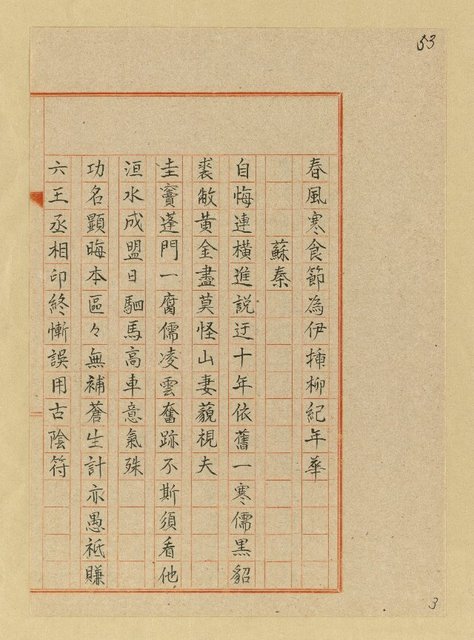 53
春風寒食節為伊揷柳紀年華
蘇秦
自悔連橫進説迂十年依舊一寒儒黑貂
裘敝黃金盡莫怪山妻藐視夫
圭竇蓬門一腐儒凌雲奮跡不斯須看他
洹水成盟日駟馬高車意氣殊
功名顯晦本區々無補蒼生計亦愚祗賺
六王丞相印終慚誤用古陰符
3